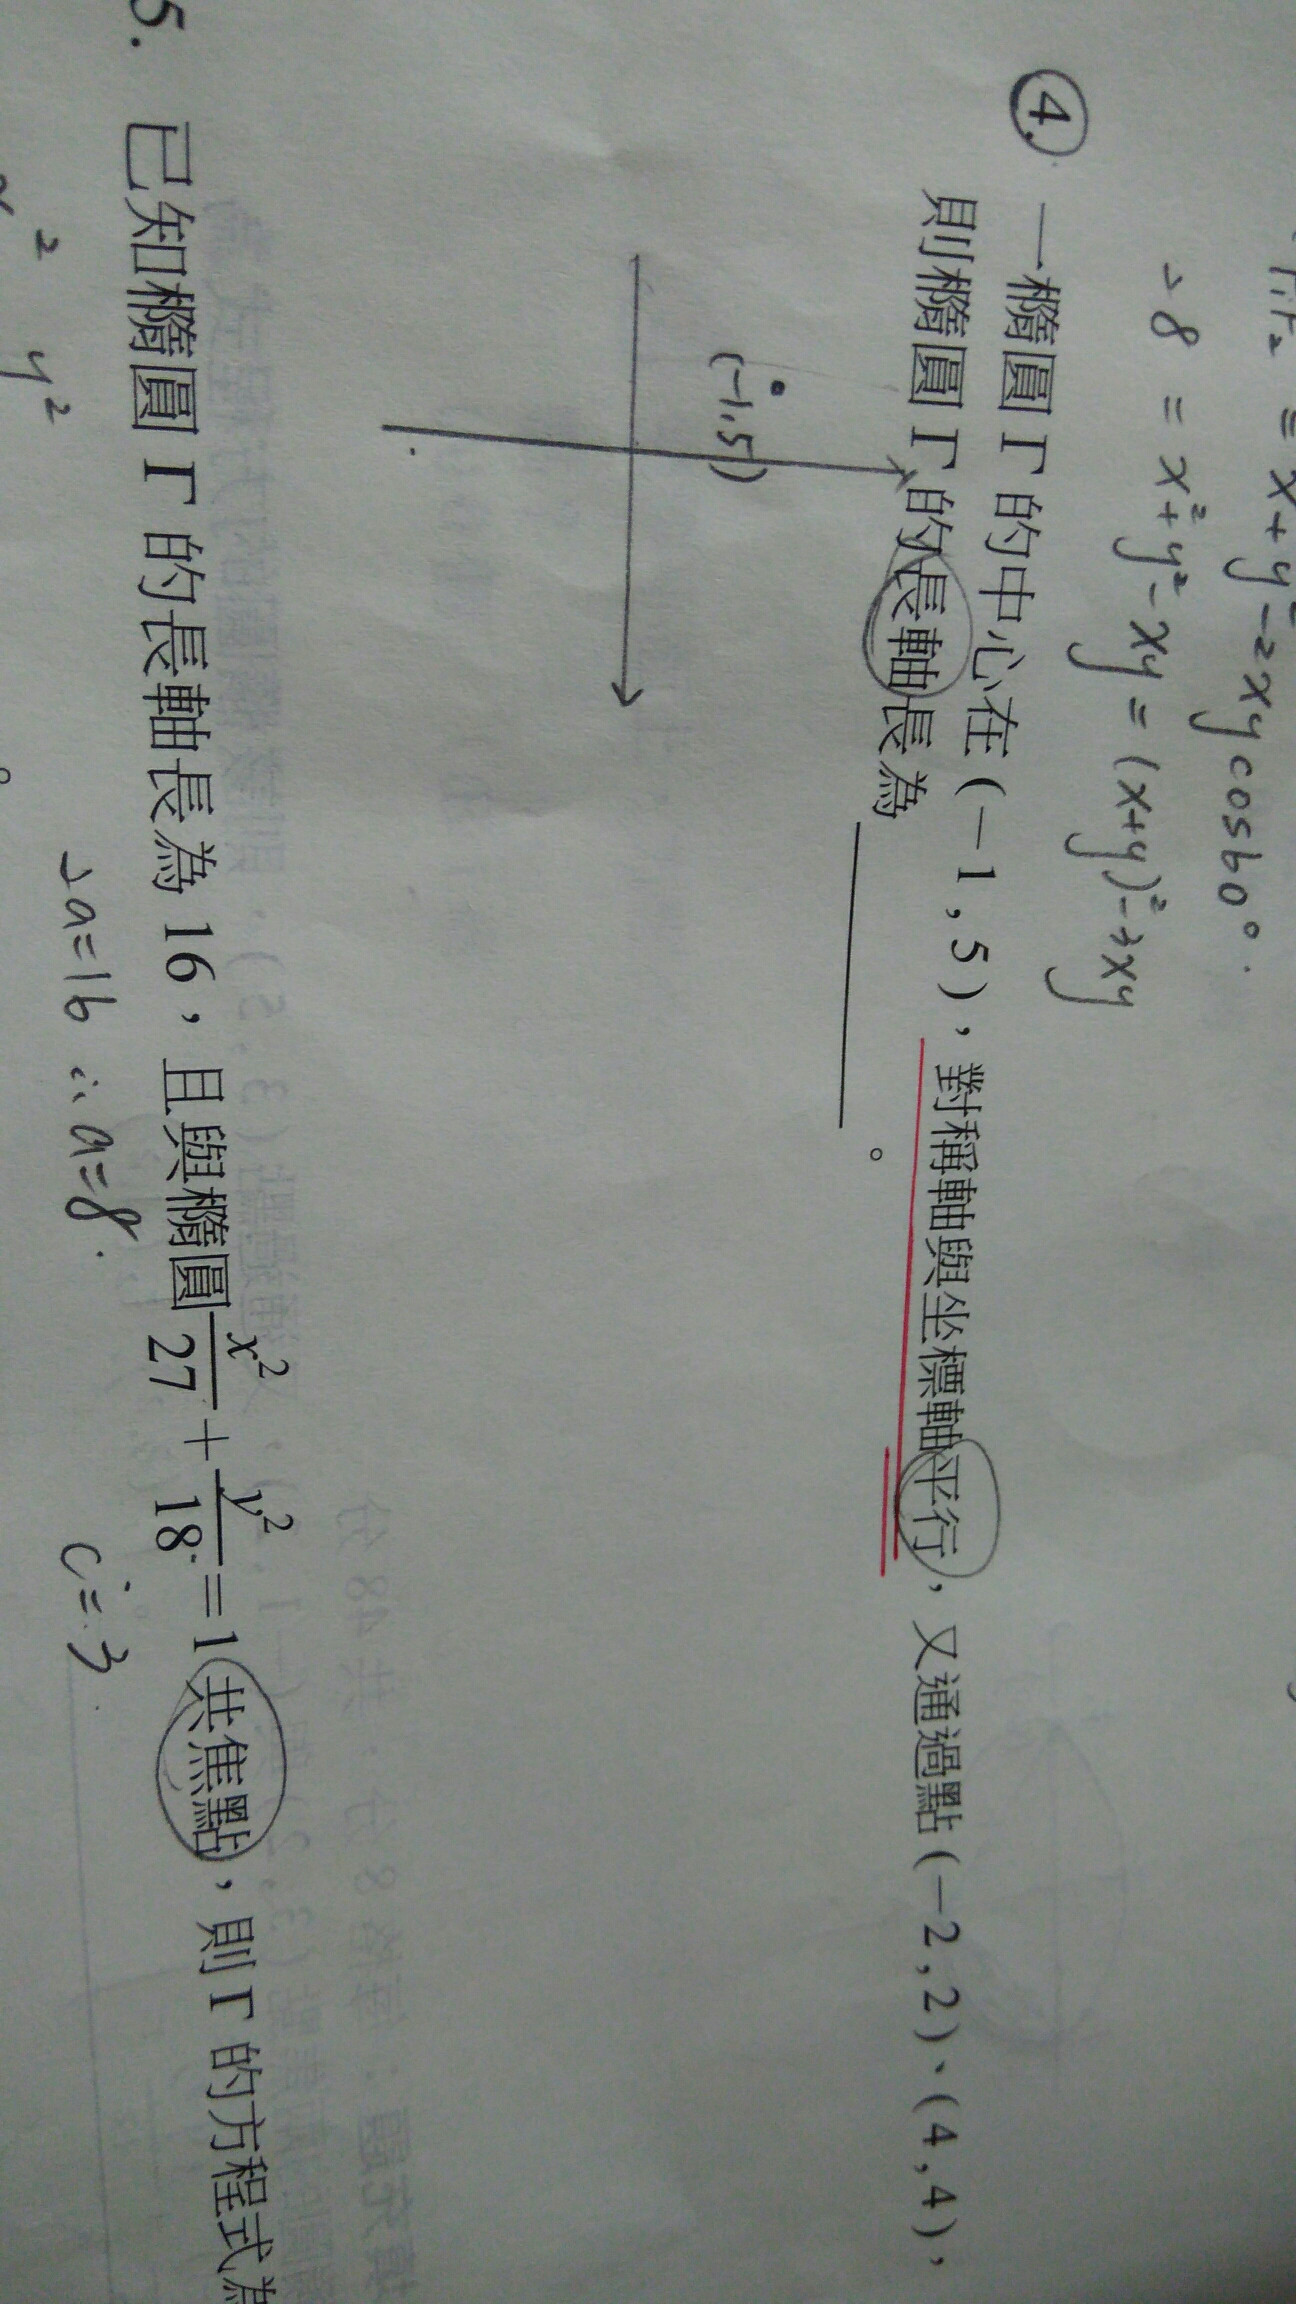 = x + y² - 2xy cos60°.
8 = x² + y² - xy = (x+y)² - 3xy
4. 一橢圓 Γ 的中心在 (-1,5),對稱軸與坐標軸平行,又通過點 (-2,2)、(4,4),
則橢圓 Γ 的長軸長為 ________。
(-1,5)
5. 已知橢圓 Γ 的長軸長為 16,且與橢圓 x²/27 + y²/18 = 1 共焦點,則 Γ 的方程式為
2a=16 ∴ a=8. c=3
x² y²